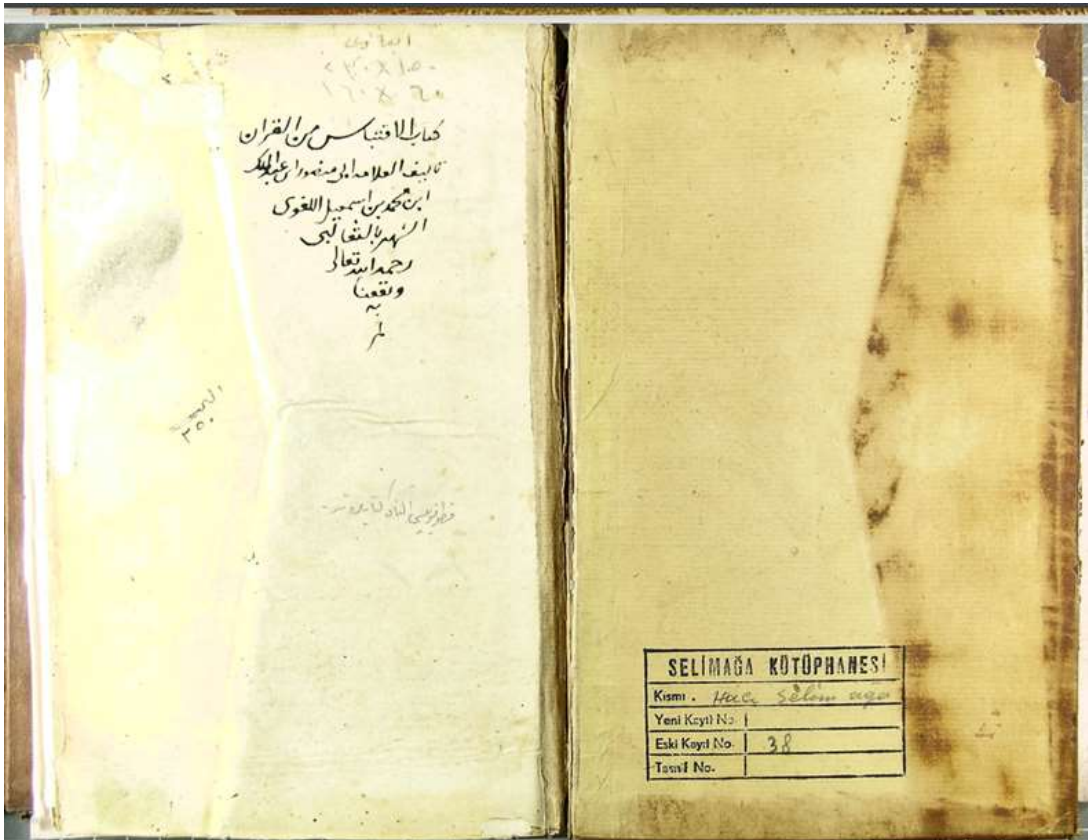 ١٥٠ X ٢٣٠
٦٥ X ١٦٠
كتاب الاقتباس من القران
تاليف العلامه ابى منصور عبد الملك
ابن محمد بن اسمعيل اللغوى
الشهير بالثعالبى
رحمه الله تعالى
ونفعنا
به
٣٥٠
SELİMAĞA KÜTÜPHANESİ
Kısmı . Hacı Selim ağa
Yeni Kayıt No.
Eski Kayıt No. 38
Tasnif No.